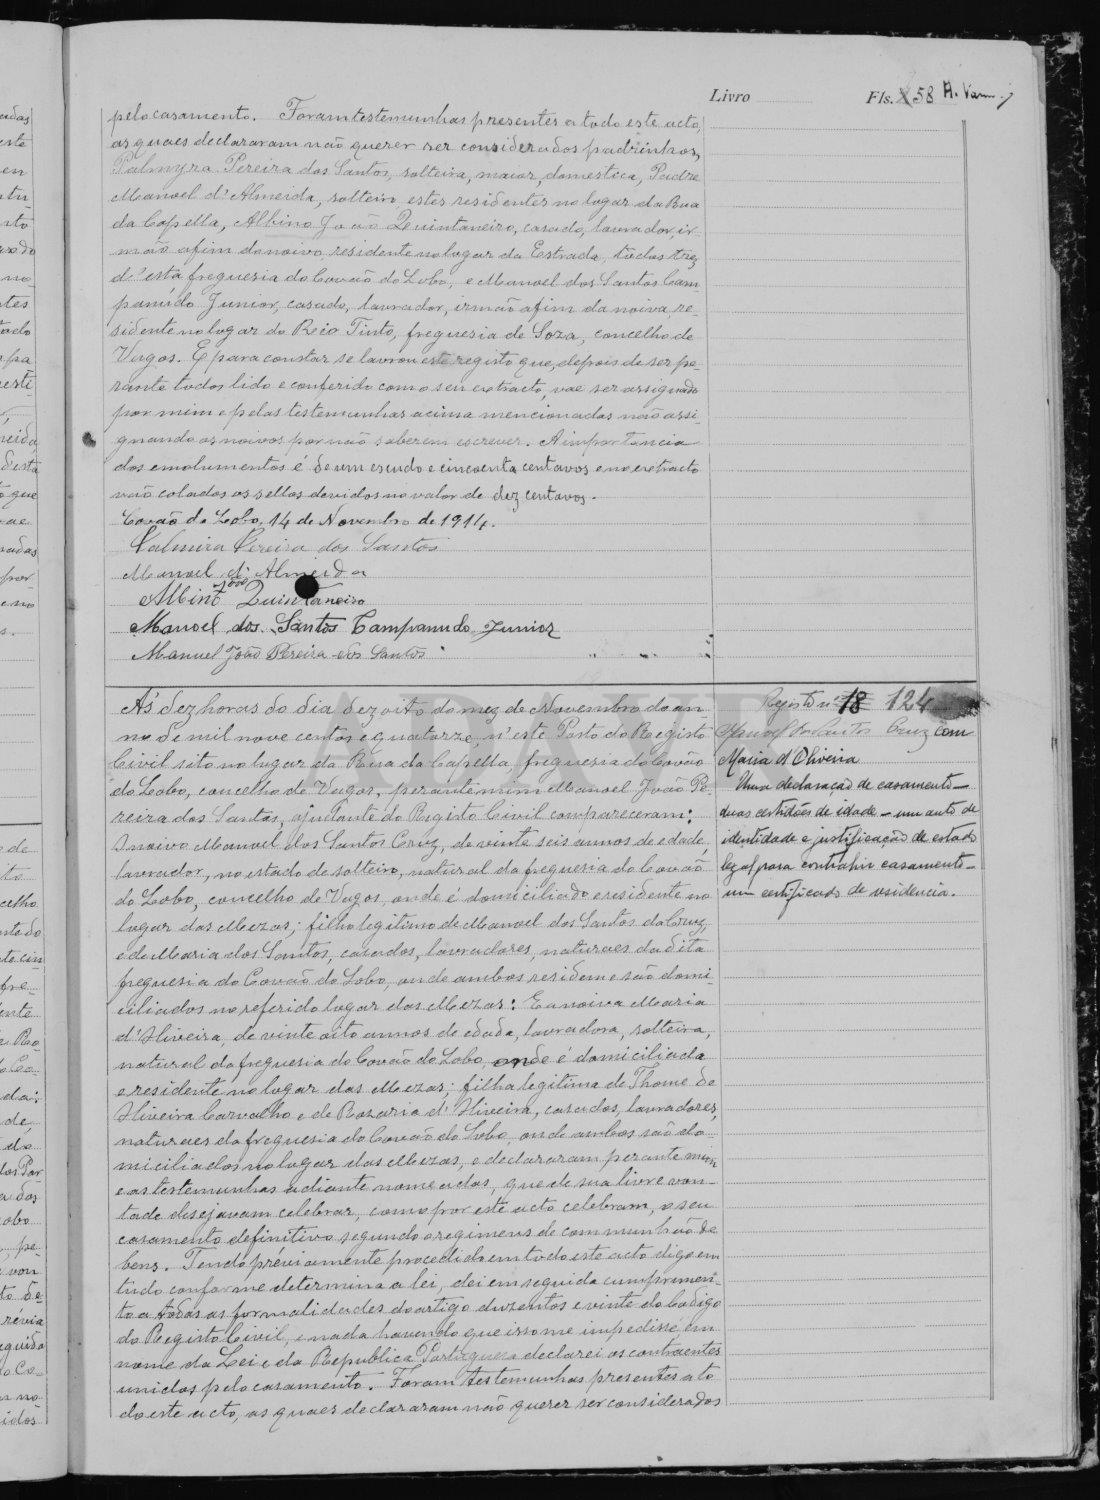 Livro Fls. 58
pelo casamento. Foram testemunhas presentes a todo este acto,
as quaes declararam não querer ser considerados padrinhos,
Palmyra Pereira dos Santos, solteira, maior, domestica, Padre
Manoel d'Almeida, solteiro, estes residentes no logar da Rua
da Capella, Albino João Quintaneiro, casado, lavrador, ir-
mão afim do noivo, residente no logar da Estrada, todos trez
d'esta freguesia do Covão do Lobo, e Manoel dos Santos Cam
panudo Junior, casado, lavrador, irmão afim da noiva, re-
sidente no logar do Rio Tinto, freguesia de Soza, concelho de
Vagos. E para constar se lavrou este registo que, depois de ser pe-
rante todos lido e conferido com o seu extracto, vae ser assignado
por mim e pelas testemunhas acima mencionadas não assi-
gnando os noivos por não saberem escrever. A importancia
dos emolumentos é de um escudo e cincoenta centavos e no extracto
vão colados os sellos devidos no valor de dez centavos.
Covão do Lobo, 14 de Novembro de 1914.
Palmira Pereira dos Santos
Manoel d'Almeida
Albino João Quintaneiro
Manoel dos Santos Campanudo Junior
Manuel João Pereira dos Santos
Ás dez horas do dia dezoito do mez de Novembro do an-
no de mil nove centos e quatorze, n'este Posto do Registo
Civil sito no lugar da Rua da Capella, freguesia do Covão
do Lobo, concelho de Vagos, perante mim Manoel João Pe-
reira dos Santos, ajudante do Registo Civil compareceram:
O noivo Manoel dos Santos Cruz, de vinte seis annos de edade,
lavrador, no estado de solteiro, natural da freguesia do Covão
do Lobo, concelho de Vagos, onde é domiciliado e residente no
lugar das Mezas; filho legitimo de Manoel dos Santos da Cruz,
e de Maria dos Santos, casados, lavradores, naturaes da dita
freguesia do Covão do Lobo, onde ambos residem e são domi-
ciliados no referido logar das Mezas: E a noiva Maria
d'Oliveira, de vinte oito annos de edade, lavradora, solteira,
natural da freguesia do Covão do Lobo, onde é domiciliada
e residente no lugar das Mezas; filha legitima de Thomé de
Oliveira Carvalho e de Rozaria d'Oliveira, casados, lavradores,
naturaes da freguesia do Covão do Lobo, onde ambos são do-
miciliados no lugar das Mezas, e declararam perante mim
e as testemunhas adiante nomeadas, que de sua livre von-
tade desejavam celebrar, como por este acto celebram, o seu
casamento definitivo segundo o regimens de communhão de
bens. Tendo préviamente procedido em todo este acto digo em
tudo conforme determina a lei, dei em seguida cumprimen-
to a todas as formalidades do artigo duzentos e vinte do Codigo
do Registo Civil, e nada havendo que isso me impedisse, em
nome da Lei e da Republica Portuguesa declarei os contraentes
unidos pelo casamento. Foram testemunhas presentes a to
do este acto, as quaes declararam não querer ser considerados
Registo nº 18 124
Manoel dos Santos Cruz com
Maria d'Oliveira
Uma declaração de casamento -
duas certidões de idade - um auto de
identidade e justificação de estado
legal para contrahir casamento -
um certificado de residencia.